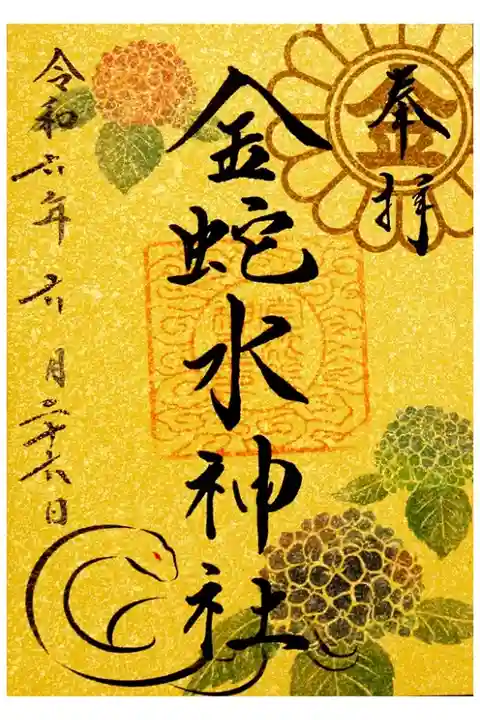 奉拝
金蛇水神社
令和六年六月二十六日
金